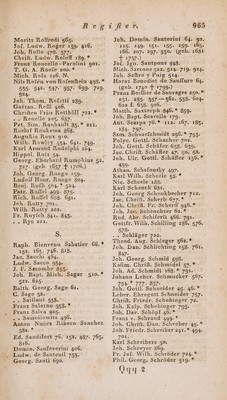 Register. 965
Moritz Rolfredi 965.
Sof. Ludw. Roger 159. 416.
Joh. Rolle 472. 577.
Christ. Ludw. Roloff 189. *
Franz Roncalli-Parolini 901.
T. G. A. Roose 200. *
Mich. Rosa 126. N.
Nils Rosén von Rosenstein 495. *
555. 540. 547. 557. 659. 729.
924.
Joh. Thom. Rosetti 289.
Guizus. Rossi 406.
Christ. Friis Rottböll 721. *
. . Rouelle 207. 667.
Pet. Sim. Rouhault 35. *
Roelof Roukema 289.
Augustin Roux 910.
Will. Rowley 541. 641. 749.
Karl Asmund Rudolphi 200.
Hippol. Ruiz 54.
Georg Eberhard Rumphius 52.
707 (geb. 1637 † 1706.)
Georg Henr. Ruge 159.
Rudolf Huur, Range 904.
Benj. Rush 504. * 504.
Patr. Russel 449. 675.
Rich. Russel 628. 651.
Joh. Rutty 701.
Will. Rutty 202.
Fr. Ruysch 841. 845.
. . Ryo 211.
S.
Raph. Bienvenu Sabatier 66. *
152. 165. 746. 815.
Jac. Sacchi 484.
Ludw. Sacco 954.
J. F. Sacombe 955.
Joh. Bapt. Mich. Sagar 510. *
521. 625.
Balth. Georg. Sage 61.
C. Sage 51.
. . Saillant 558.
Franz Salerne 958. *
Franz Salva 905.
. . Samoilowitz 496.
Anton Nunez Ribero Sanchez
581. *
Ed. Sandifort 76. 152. 487. 765.
816.
Domin. Sanseverini 406.
Ludw. de Santeuil 755.
Georg. Santi 690.
Joh. Domin. Santorini 64. 92.
118. 149. 151. 155. 159. 165.
166. 207. 297. 550. (geb. 1681
† 1737.)
Jof. Ign. Santpons 942.
Mich. Sarcone 512. 514. 719. 924.
Joh. Sastre y Puig 514.
Horaz Benedict de Saussure 64.
(geb. 1740 † 1799.)
Franz Boissier de Sauvages 250. *
251. 285. 857.
Matth. Saxtorph 946. *
Joh. Bapt. Saverille 179.
Ant. Scarpa 76. * 112. 167. 185.
297.
Sam. Schaarschmidt 246. * 755.
Polyc. Gottl. Schacher 705.
Joh. Gottl. Schäfer 659. 659.
Jac. Christ. Schäffer 47. 50. *
Joh. Ulr. Gottl. Schäffer 156. *
459.
Aham. Schafonsky 497.
Karl Wilh. Scheele 55. *
Nic. Scheele 282.
Karl Schenk 651.
Joh. Georg Schenkbecher 711.
Jac. Christ. Scherb 657. *
Joh. Christ. Fr. Scherf 946. *
Joh. Jac. Scheuchzer 61. *
Rud. Abr. Schiferli 468. 791.
Gottfr. Wilh. Schilling 286. 576.
575.
. . Schlager.
Theod. Aug. Schleger 261. *
Joh. Dan. Schlichting 758. 761.
847.
Joh. Georg. Schmid 596.
Kasim. Christ. Schmidel 57. *
Joh. Ad. Schmidt 768. * 791.
Johann Leber. Schmucker 567.
754. * 777. 857.
Joh. Gottl. Schneider 45. 46. *
Leber. Ehregott Schneider 757.
Christ. Friedr. Schnitzer 71.
Joh. Kasp. Schobinger 795.
Joh. Dav. Schöpf 46. *
Franz v. Schraud 449. *
Joh. Christ. Dan. Schreber 45. *
Joh. Friedr. Schreiber 241. * 494.
704.
Karl Schreibers 50.
Joh. Schreyer 269.
Fr. Jof. Wilh. Schröder 714. *
Phil. Georg. Schröder 319. *
Qqq 2